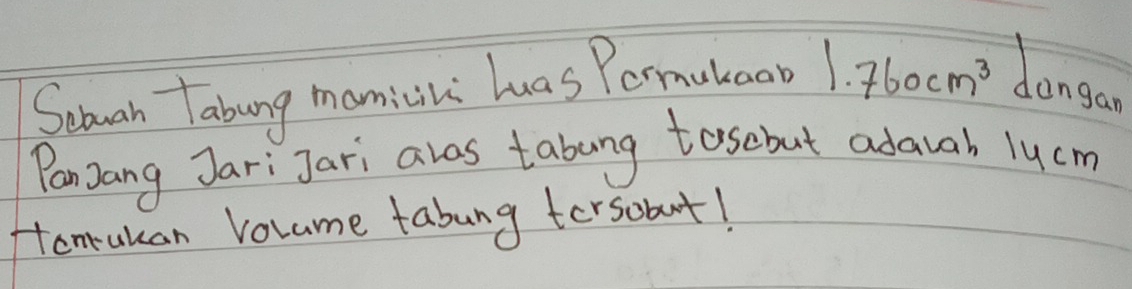 Sebuah Tabung memiliki luas Permukaan 1.760cm³ dengan
Panjang Jari Jari alas tabung tersebut adalah 14cm
tentukan Volume tabung tersebut!